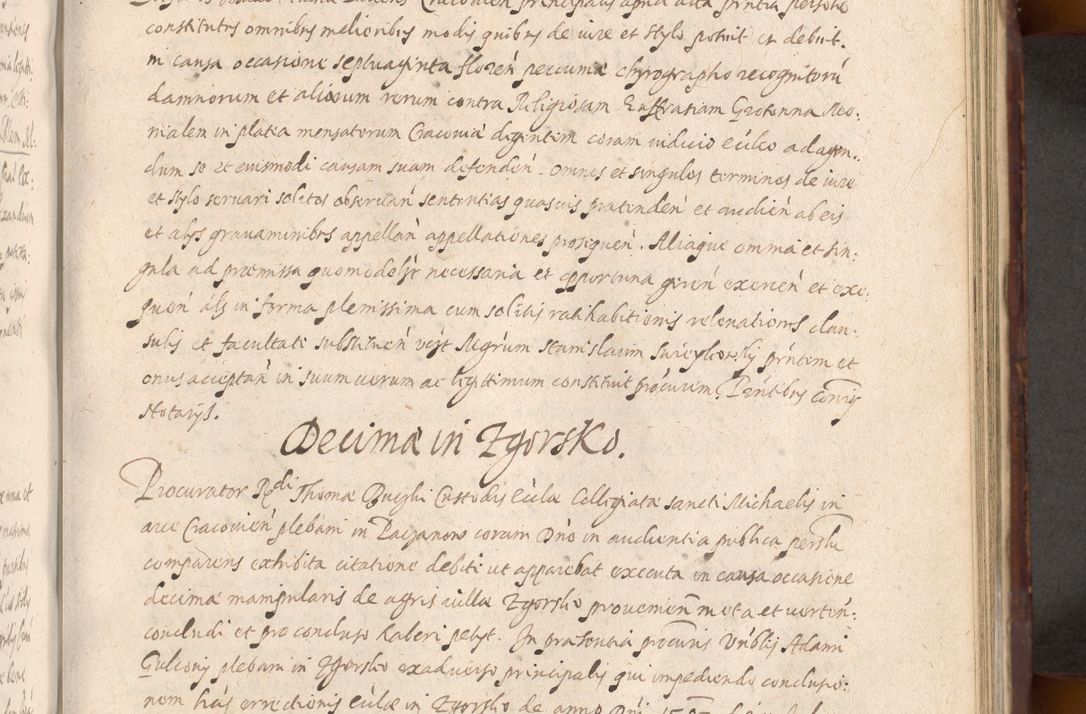 constitutus omnibus melioribus modis quibus de iure et stylo potuit et debuit.
in causa occasione septuaginta floren pecuniæ chyrographo recognitoru
damnorum et aliorum rerum contra Religiosam Eustratiam Mo:
nialem in platea mensatorum Cracoviæ degentem coram iudicio eccleo ad agen:
dum se et eiusmodi causam suam defenden. omnes et singulos terminos de iure
et stylo servari solitos observan sententias quasvis prætenden et audien ab eis
et alys gravaminibus appellan appellationes prosequen. Aliaque omnia et sin:
gula ad præmissa quomodolit necessaria et opportuna geren exercen et exe:
quen als in forma plenissima cum solitis ratihabitionis relevationis clau:
sulis et facultate substituen vest Magrum Stanislaum præntem et
onus acceptan in suum verum ac legitimum constituit procurem. Præntibus
Notarys.
Decimæ in Zgorsko.
Procurator Rdi Thomæ Custodis ecclæ Collegiatæ sancti Michaelis in
arce Cracovien plebani in Paczanow coram Dno in audientia publica persle
comparens exhibita citatione debite ut apparebat executa in causa occasione
decimæ manipularis de agris villæ Zgorsko provenien mota et verten:
concludi et pro concluso haberi petyt. In præsentia procuris Vnblis Adami
plebani in Zgorsko ex adverso principalis qui impediendo conclusio:
nem hás erectionis ecclæ in Zgorsko de anno Dni